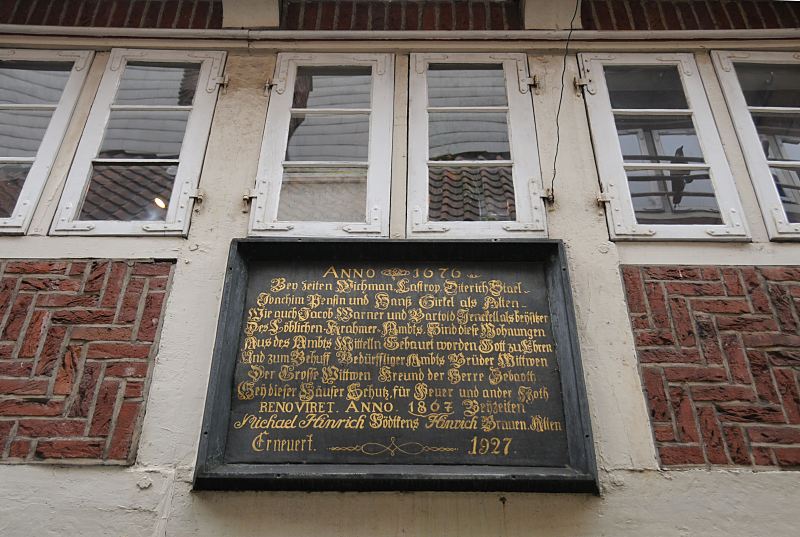 ANNO 1676
Bey zeiten Wichman, Lastrop, Diterich Stael
Joachim Pensin und Hanß Sirkel als Alten
Wie auch Jacob Warner und Bartold Jenefell als beysiker
Des Löblichen Krahmer Ambts Sind diese Wohnungen
Aus des Ambts Mitteln Gebauet worden Gott zu Ehren
Und zum Behuff Bedürfftiger Ambts Brüder Witwen
Der Grosse Witwen Freund der Herre Zebaoth
Sey dieser Häuser Schutz, für Feuer und ander Noth
RENOVIRET. ANNO. 1867 Beyzeiten
Michael Hinrich Böttens Hinrich Braun. Alten
Erneuert. 1927.